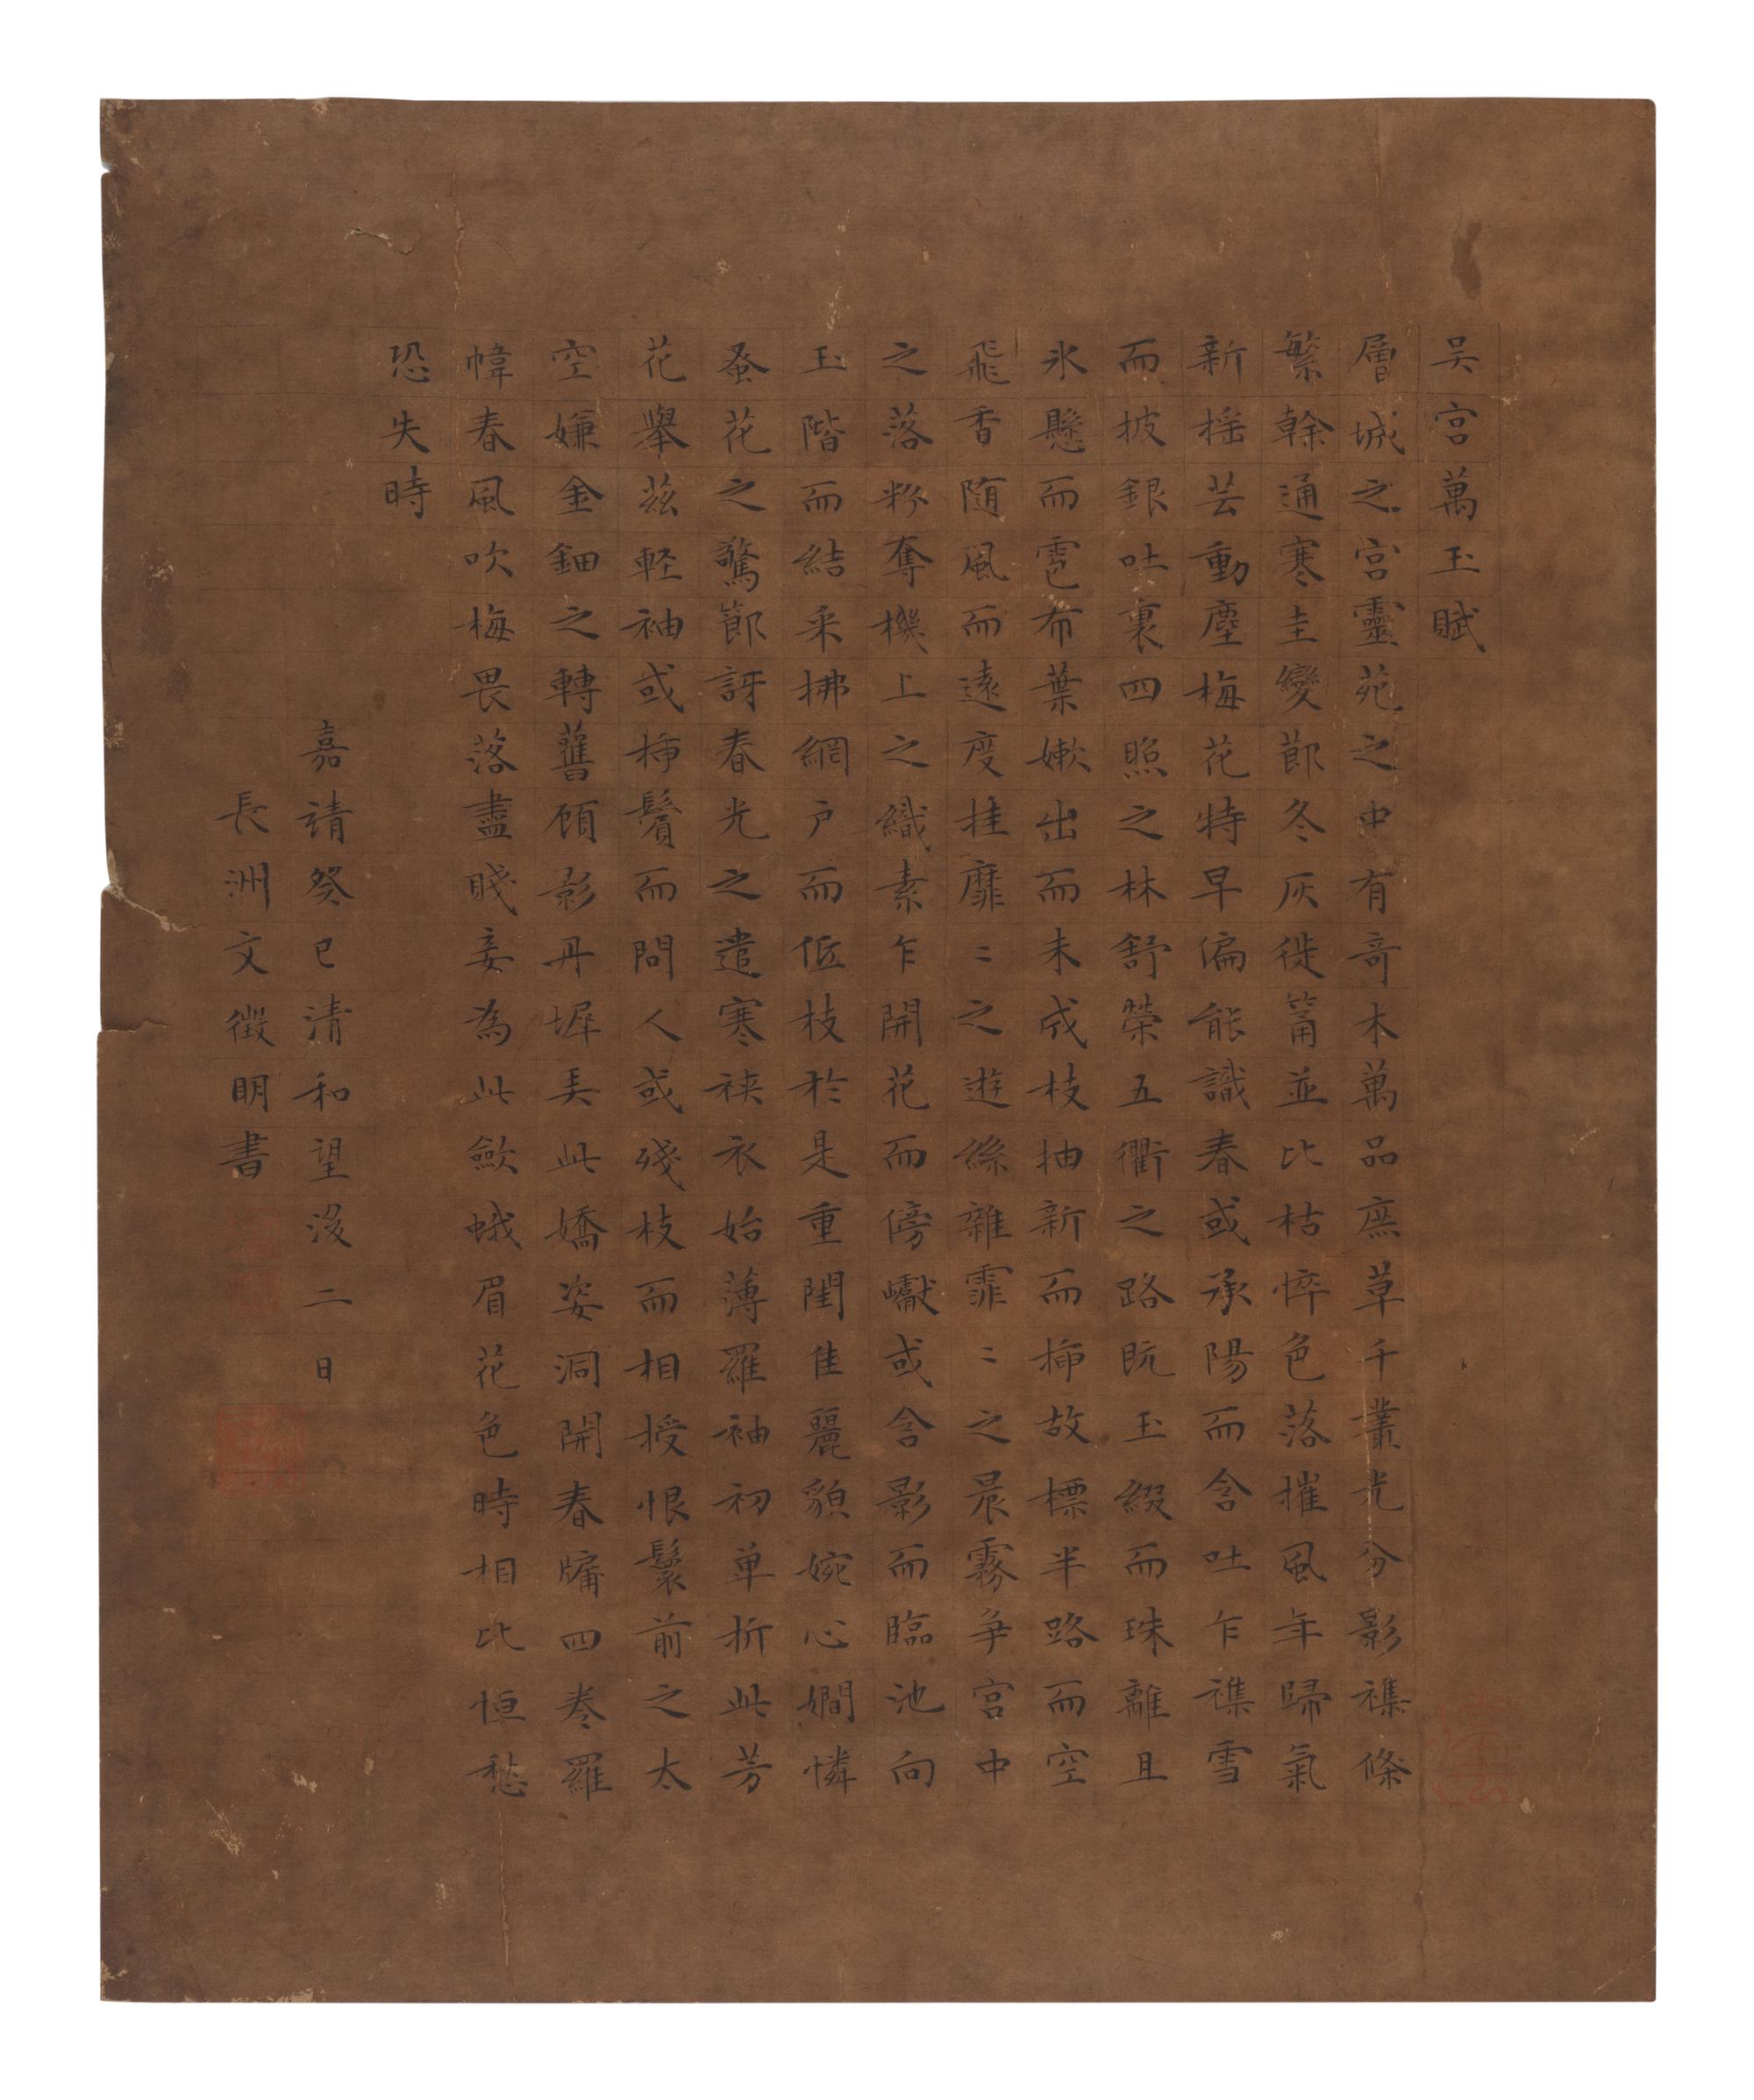 吴宫萬玉賦
層城之宫靈苑之中有奇木萬品庶草千叢光分影襍條
繁榦通寒圭變節冬灰徙筩並比枯悴色落摧風年歸氣
新摇芸動塵梅花特早偏能識春或承陽而含吐乍襍雪
而披銀吐裏四照之林舒榮五衢之路既玉綴而珠離且
氷懸而雹布葉嫰出而未成枝抽新而揷故標半路而空
飛香随風而遠度挂靡〻之遊絲雜霏〻之晨霧争宫中
之落粉奪機上之織素乍開花而傍巘或含影而臨池向
玉階而結采拂網户而低枝於是重閨佳麗貌婉心嫺憐
蚤花之驚節訝春光之遣寒裌衣始薄羅袖初单折此芳
花舉茲軽袖或揷鬢而問人或殘枝而相授恨鬟前之太
空嫌金鈿之轉舊顧影丹墀矣此嬌姿洞開春牖四卷羅
幃春風吹梅畏落盡賤妾為此歛蛾眉花色時相比恒愁
恐失時
嘉靖癸巳清和望後二日
長洲文徴明書